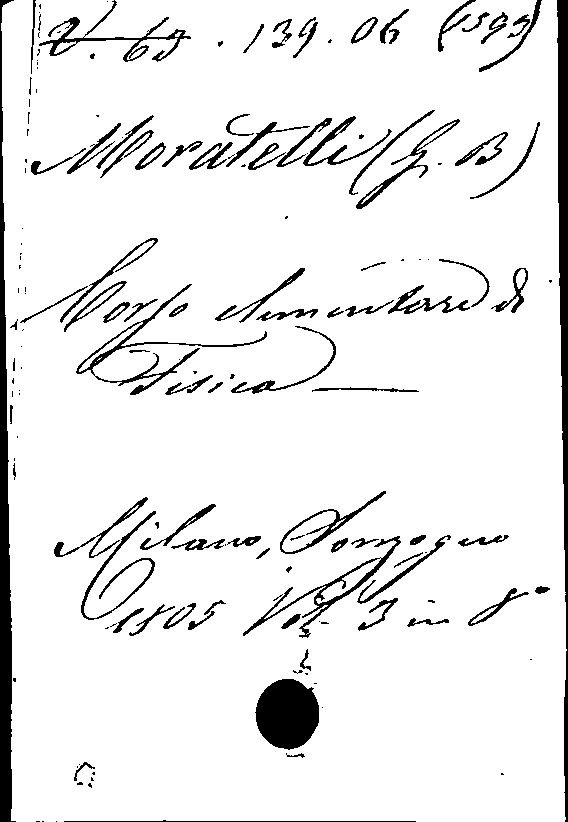 V. 63 . 139 . 06 (1593)
Moratelli (G. B)
Corso elementare di
Fisica
Milano, Sonzogno
1805 Vol. 3 in 8°